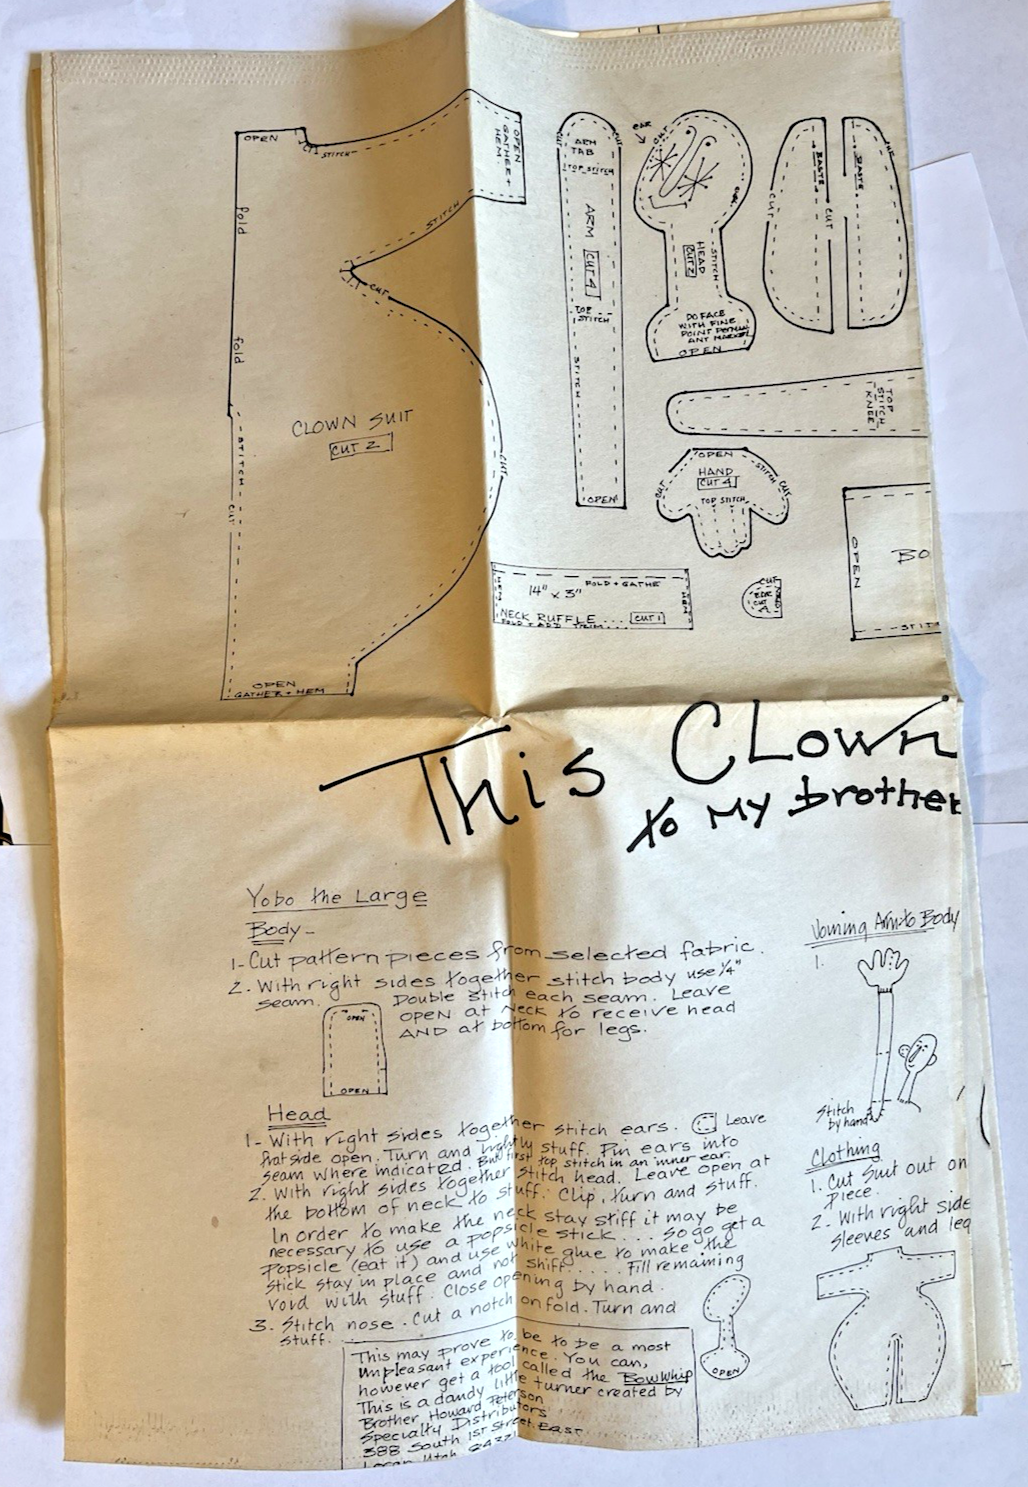 OPEN
CUT STITCH
OPEN
GATHER +
HEM
fold
STITCH
CUT
fold
CLOWN SUIT
CUT 2
STITCH
CUT
CUT
OPEN
GATHER + HEM
CUT
ARM
TAB
TOP STITCH
ARM
CUT 4
TOP
STITCH
STITCH
OPEN
EAR
CUT
HEAD
CUT 2
STITCH
DO FACE
WITH FINE
POINT PERM
ANT MARKER
OPEN
CUT
BASTE
CUT
BASTE
CUT
TOP
STITCH
KNEE
OPEN
HAND
CUT 4
STITCH
CUT
CUT
TOP STITCH
HEM
14" x 3"
FOLD + GATHE
HEM
NECK RUFFLE...
CUT 1
FOLD + ADD TRIM...
CUT
EAR
CUT 4
OPEN
BO
STIT
This CLown
to MY brother
Yobo the Large
Body-
1- Cut pattern pieces from selected fabric.
2. With right sides together stitch body use 1/4"
seam. Double stitch each seam. Leave
OPEN at Neck to receive head
AND at bottom for legs.
OPEN
OPEN
Head
1- With right sides together stitch ears. Leave
flat side open. Turn and lightly stuff. Pin ears into
seam where indicated. But first top stitch in an inner ear.
2. With right sides together stitch head. Leave open at
the bottom of neck to stuff. Clip, turn and stuff.
In order to make the neck stay stiff it may be
necessary to use a popsicle stick.... So go get a
Popsicle (eat it) and use white glue to make the
stick stay in place and not shiff..... Fill remaining
void with stuff. Close opening by hand.
3. Stitch nose. Cut a notch on fold. Turn and
stuff.
OPEN
This may prove to be to be a most
Unpleasant experience. You can,
however get a tool called the BowWhip
This is a dandy little turner created by
Brother Howard Peterson
Specialty Distributors
388 South 1st Street East
Logan Utah 84321
Joining Arm to Body
1.
Stitch
by hand
Clothing
1. Cut suit out on
piece.
2- With right side
sleeves and leg